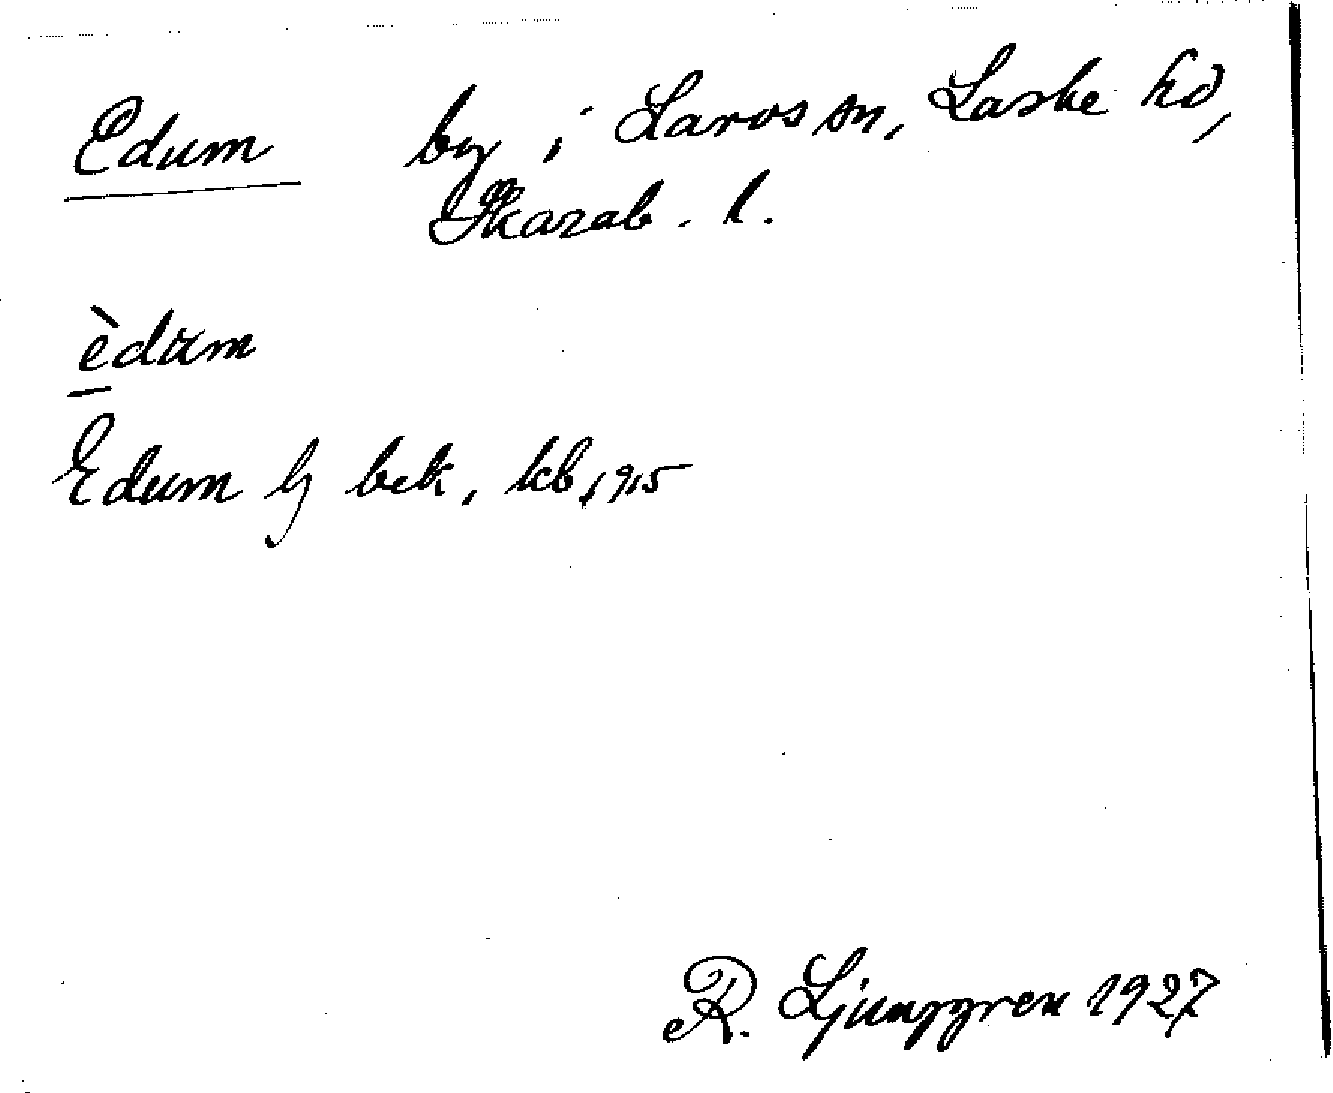 Edum by i Larvs sn, Laske hd,
Skarab. l.
èdum
Edum by bek, kb, 1915
R. Ljunggren 1927